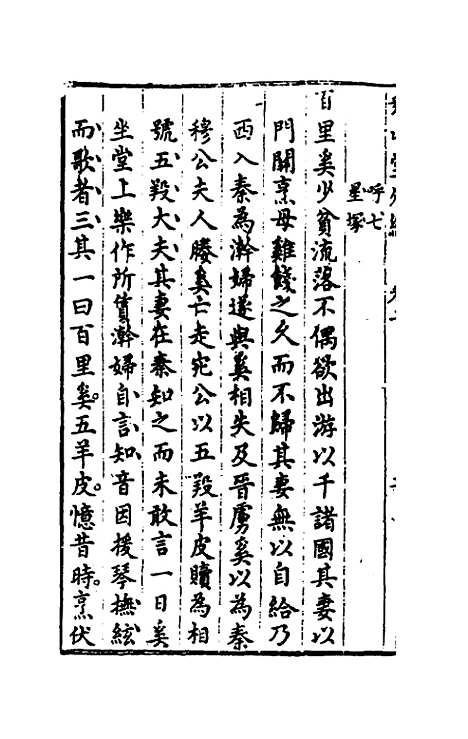 呼七
星塚
百里奚少貧流落不偶欲出游以干諸國其妻以
門關烹母雞餞之久而不歸其妻無以自給乃
西入秦為澣婦遂與奚相失及晉虜奚以為秦
穆公夫人媵奚亡走宛公以五羖羊皮贖為相
號五羖大夫其妻在秦知之而未敢言一日奚
坐堂上樂作所賃澣婦自言知音因援琴撫絃
而歌者三其一曰百里奚。五羊皮。憶昔時。烹伏